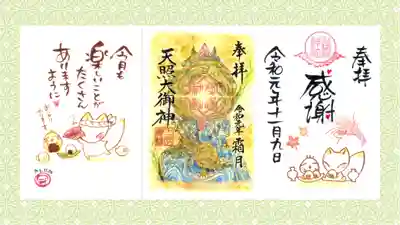 奉拝
感謝
令和元年十一月九日
奉拝
令和元年 霜月
天照大御神
今月も
楽しいことが
たくさん
あります
ように